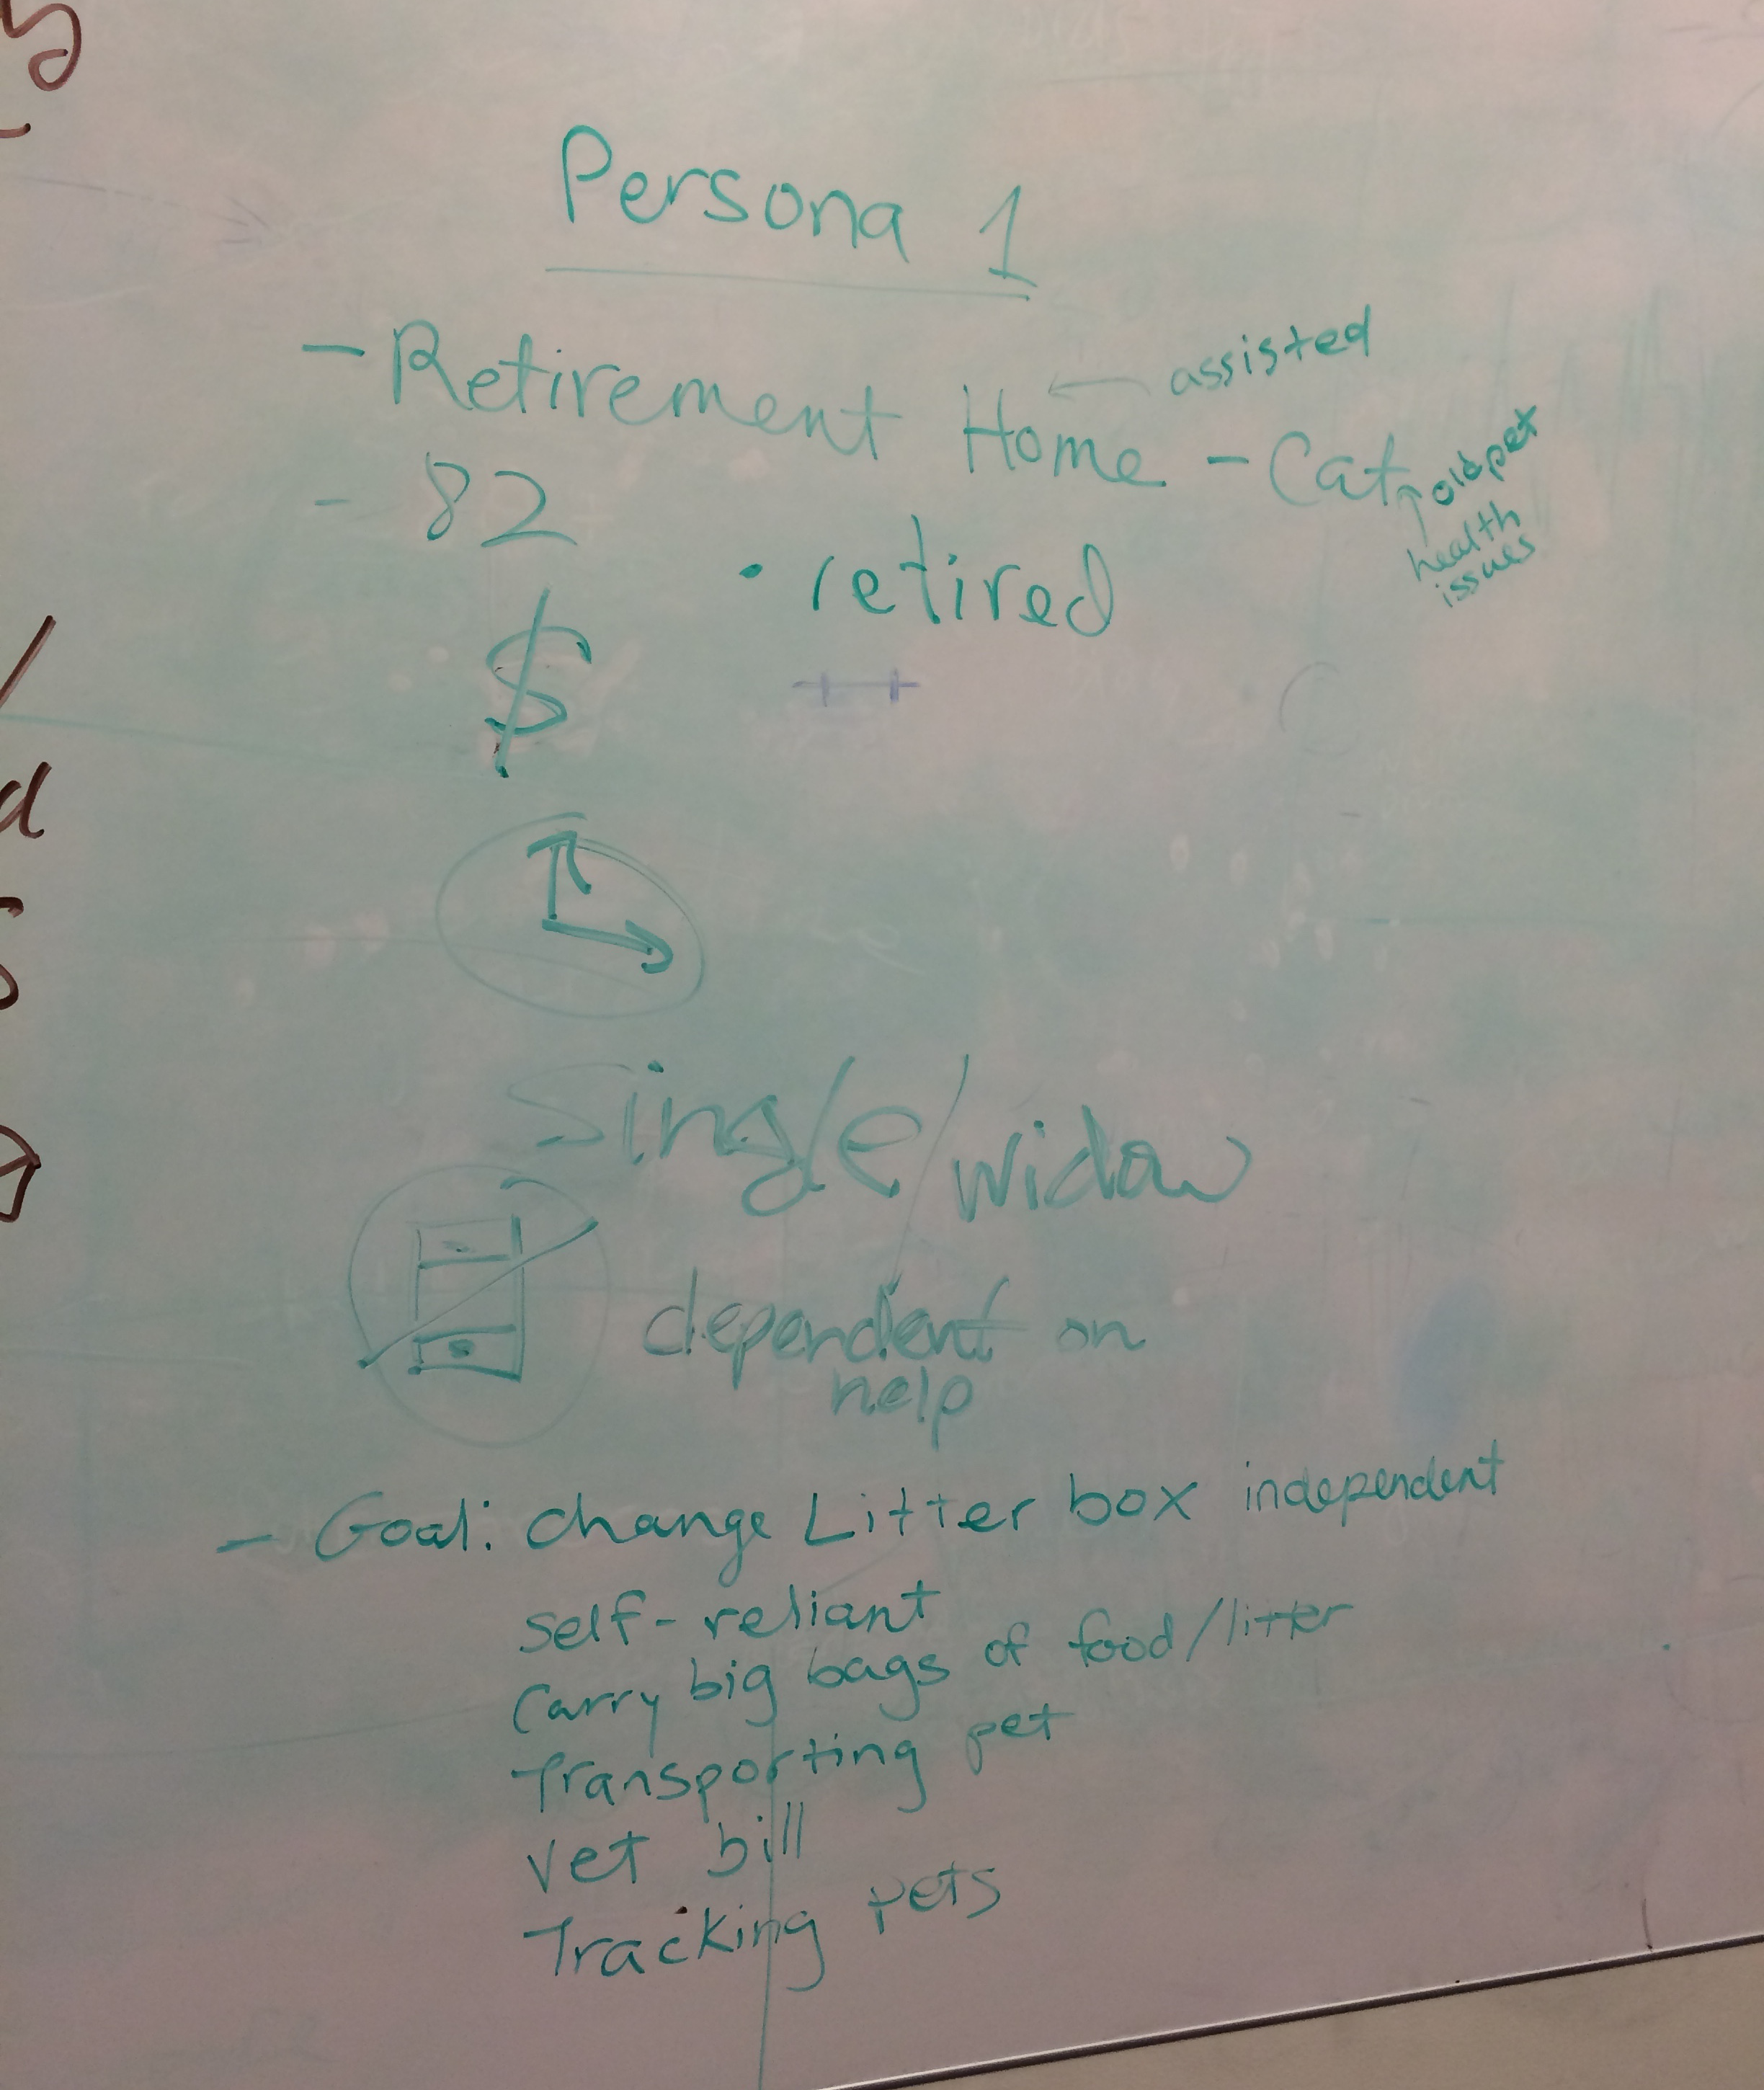 Persona 1
- Retirement Home ← assisted
- Cat
old pet
health
issues
- 82
• retired
$
Single/widow
dependent on
help
- Goal: change Litter box independent
self-reliant
Carry big bags of food/litter
Transporting pet
Vet bill
Tracking pets